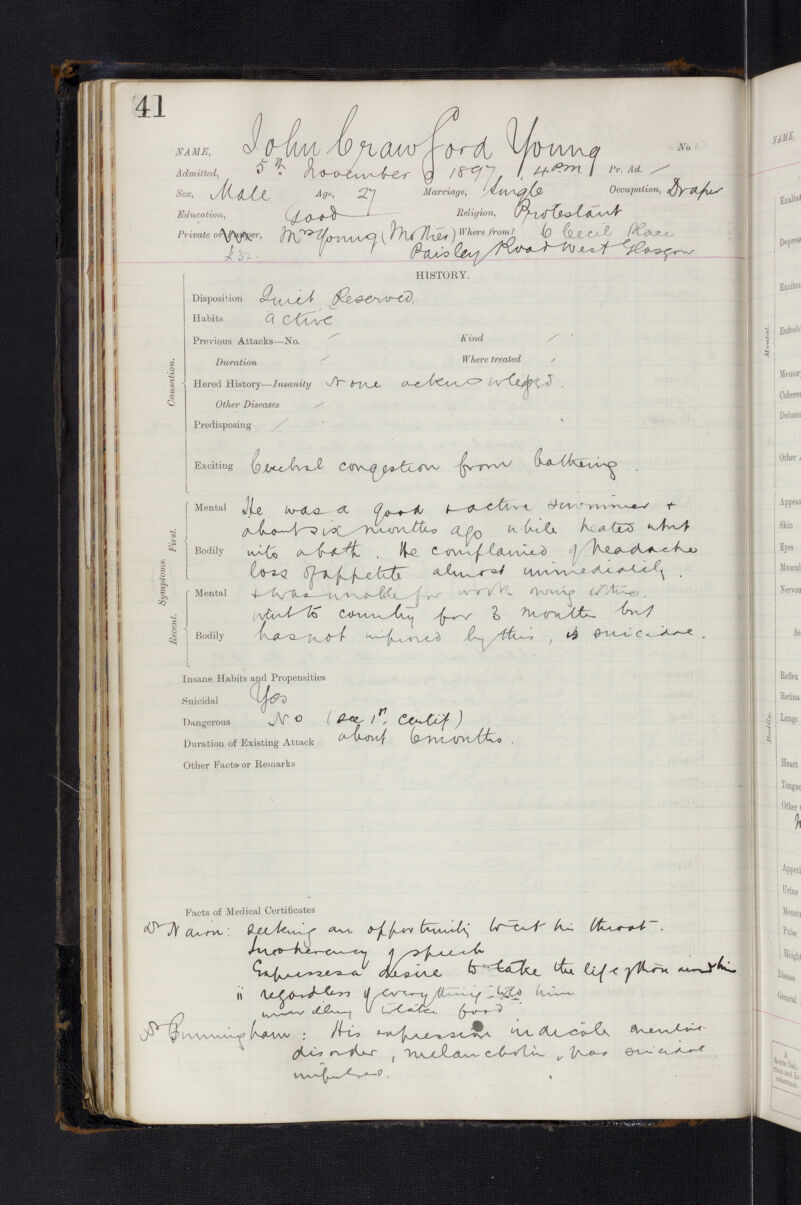 41
NAME, John Crawford Young No
Admitted, 5th November 1897, 4 pm Pr. Ad. /
Sex, Male Age, 27 Marriage, Single Occupation, Draper
Education, Good Religion, Protestant
Private or Pauper, Mrs Young (Mother) Where from? 6 Cecil Place
£32. Paisley Road West Glasgow
HISTORY.
Causation.
Disposition Quiet Reserved.
Habits active
Previous Attacks—No. / Kind /
Duration / Where treated /
Hered History—Insanity None acknowledged.
Other Diseases /
Predisposing /
Exciting Cerebral congestion from bathing.
Symptoms.
First.
Mental He was a good & active swimmer &
about six months ago while heated went
Bodily into a bath. He complained of headache
loss of appetite almost immediately.
Recent.
Mental & was unable for work owing to this.
went to country for 3 months but
Bodily has not improved by this, is suicidal.
Insane Habits and Propensities
Suicidal Yes
Dangerous No (see 1st. certif)
Duration of Existing Attack about 6 months.
Other Facts or Remarks
Facts of Medical Certificates
Dr Nairn: seeking an opportunity to cut his throat.
Incoherency of speech
Expresses a desire to take the life of those around him
is regardless of everything told him
unwilling to take food
Dr : His expression indicates mental
disorder, melancholia, has suicidal
impulses.
NAME,
Mental.
Bodily.
Memor
Cohere
Delusio
Other
Appear
Skin
Eyes
Muscul
Nervou
Reflex
Retina
Lungs
Heart
Tongue
Other
Appeti
Urine
Menst
Pulse
Heigh
Disease
General
A